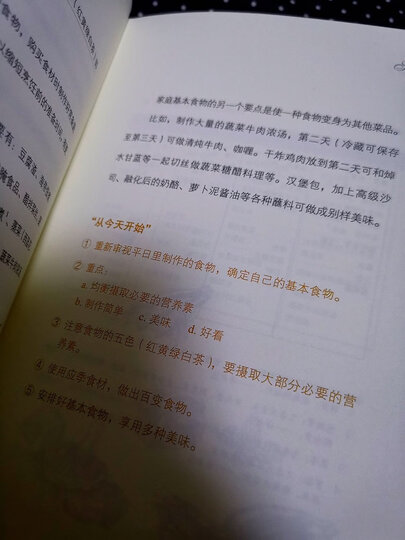 家庭基本食物的另一个要点是使一种食物变身为其他菜品。
比如，制作大量的蔬菜牛肉浓汤，第二天（冷藏可保存
至第三天）可做清炖牛肉、咖喱。干炸鸡肉放到第二天可和焯
水甘蓝等一起切丝做蔬菜糖醋料理等。汉堡包，加上高级沙
司、融化后的奶酪、萝卜泥酱油等各种蘸料可做成别样美味。
“从今天开始”
① 重新审视平日里制作的食物，确定自己的基本食物。
② 重点：
a. 均衡摄取必要的营养素
b. 制作简单 c. 美味 d. 好看
③ 注意食物的五色（红黄绿白茶），要摄取大部分必要的营
养素。
④ 使用应季食材，做出百变食物。
⑤ 安排好基本食物，享用多种美味。
食物，购买食材时制作所需
以缩短烹饪前的准备时间。